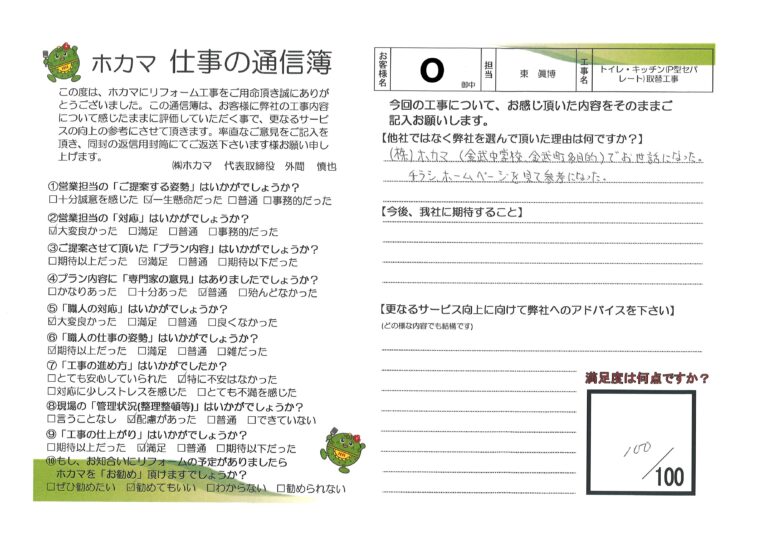 ホカマ 仕事の通信簿
この度は、ホカマにリフォーム工事をご用命頂き誠にありが
とうございました。この通信簿は、お客様に弊社の工事内容
について感じたままに評価していただく事で、更なるサービ
スの向上の参考にさせて頂きます。率直なご意見をご記入を
頂き、同封の返信用封筒にてご返送下さいます様お願い申し
上げます。
㈱ホカマ 代表取締役 外間 慎也
①営業担当の「ご提案する姿勢」はいかがでしょうか？
□十分誠意を感じた ☑一生懸命だった □普通 □事務的だった
②営業担当の「対応」はいかがでしょうか？
☑大変良かった □満足 □普通 □事務的だった
③ご提案させて頂いた「プラン内容」はいかがでしょうか？
□期待以上だった ☑満足 □普通 □期待以下だった
④プラン内容に「専門家の意見」はありましたでしょうか？
□かなりあった □十分あった ☑普通 □殆んどなかった
⑤「職人の対応」はいかがでしょうか？
☑大変良かった □満足 □普通 □良くなかった
⑥「職人の仕事の姿勢」はいかがでしょうか？
☑期待以上だった □満足 □普通 □雑だった
⑦「工事の進め方」はいかがでしたか？
□とても安心していられた ☑特に不安はなかった
□対応に少しストレスを感じた □とても不満を感じた
⑧現場の「管理状況(整理整頓等)」はいかがでしょうか？
□言うことなし ☑配慮があった □普通 □できていない
⑨「工事の仕上がり」はいかがでしょうか？
□期待以上だった ☑満足 □普通 □期待以下だった
⑩もし、お知合いにリフォームの予定がありましたら
ホカマを「お勧め」頂けますでしょうか？
□ぜひ勧めたい ☑勧めてもいい □わからない □勧められない
お客様名 O 御中 担当 東 眞博 工事名 トイレ・キッチン(P型セパ
レート)取替工事
今回の工事について、お感じ頂いた内容をそのままご
記入お願いします。
【他社ではなく弊社を選んで頂いた理由は何ですか？】
(株)ホカマ (金武中学校、金武町多目的)でお世話になった。
チラシ、ホームページを見て参考になった。
【今後、我社に期待すること】
【更なるサービス向上に向けて弊社へのアドバイスを下さい】
(どの様な内容でも結構です)
満足度は何点ですか？
100
/100